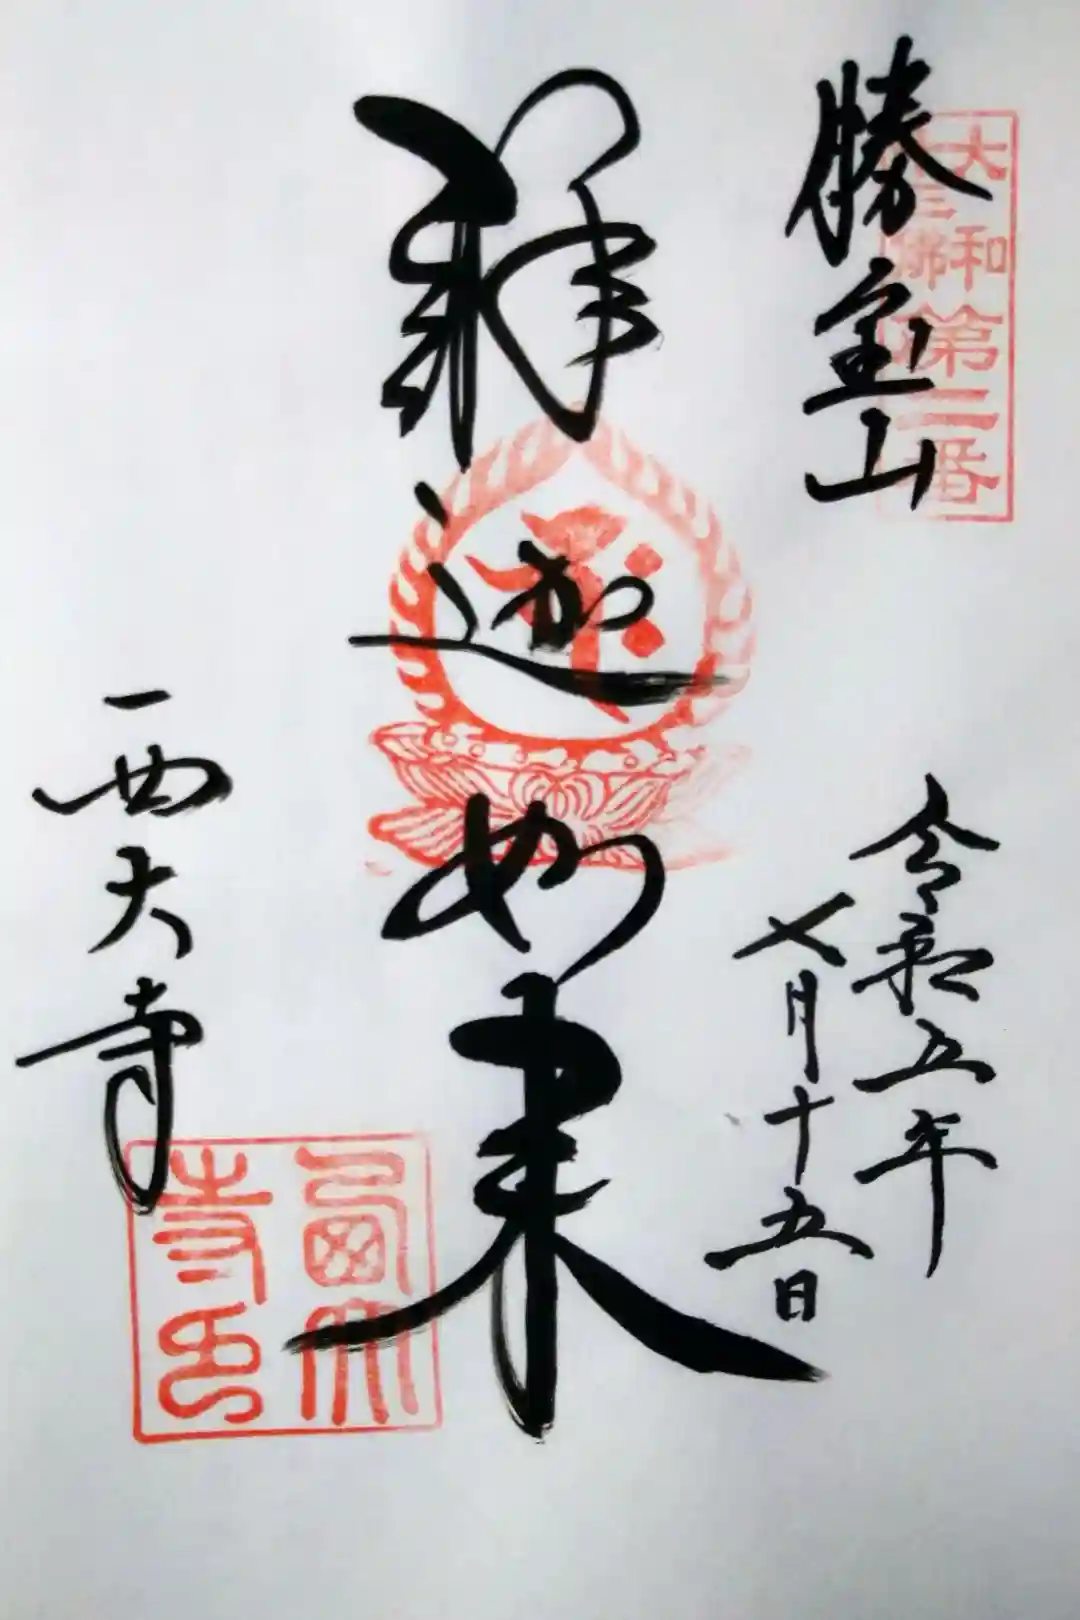 大和
十三佛
第二番
勝宝山
令和五年
七月十五日
釋迦如来
西大寺
西大
寺印